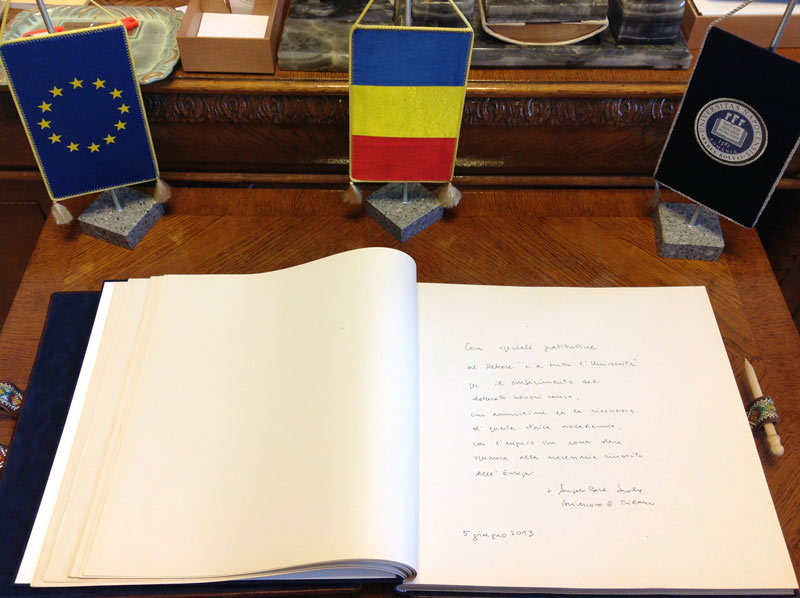 UNIVERSITAS NAPOCENSIS
1581
ROMÂNIA
BABEȘ-BOLYAI
Con speciale gratitudine
al Rettore e a tutta l'Università
per il conferimento del
dottorato honoris causa,
con ammirazione per la ricchezza
di questa storica accademia,
con l'augurio che possa dare
speranza alla necessaria rinascita
dell'Europa
+ Angelo Card. Scola
Arcivescovo di Milano
5 giugno 2013